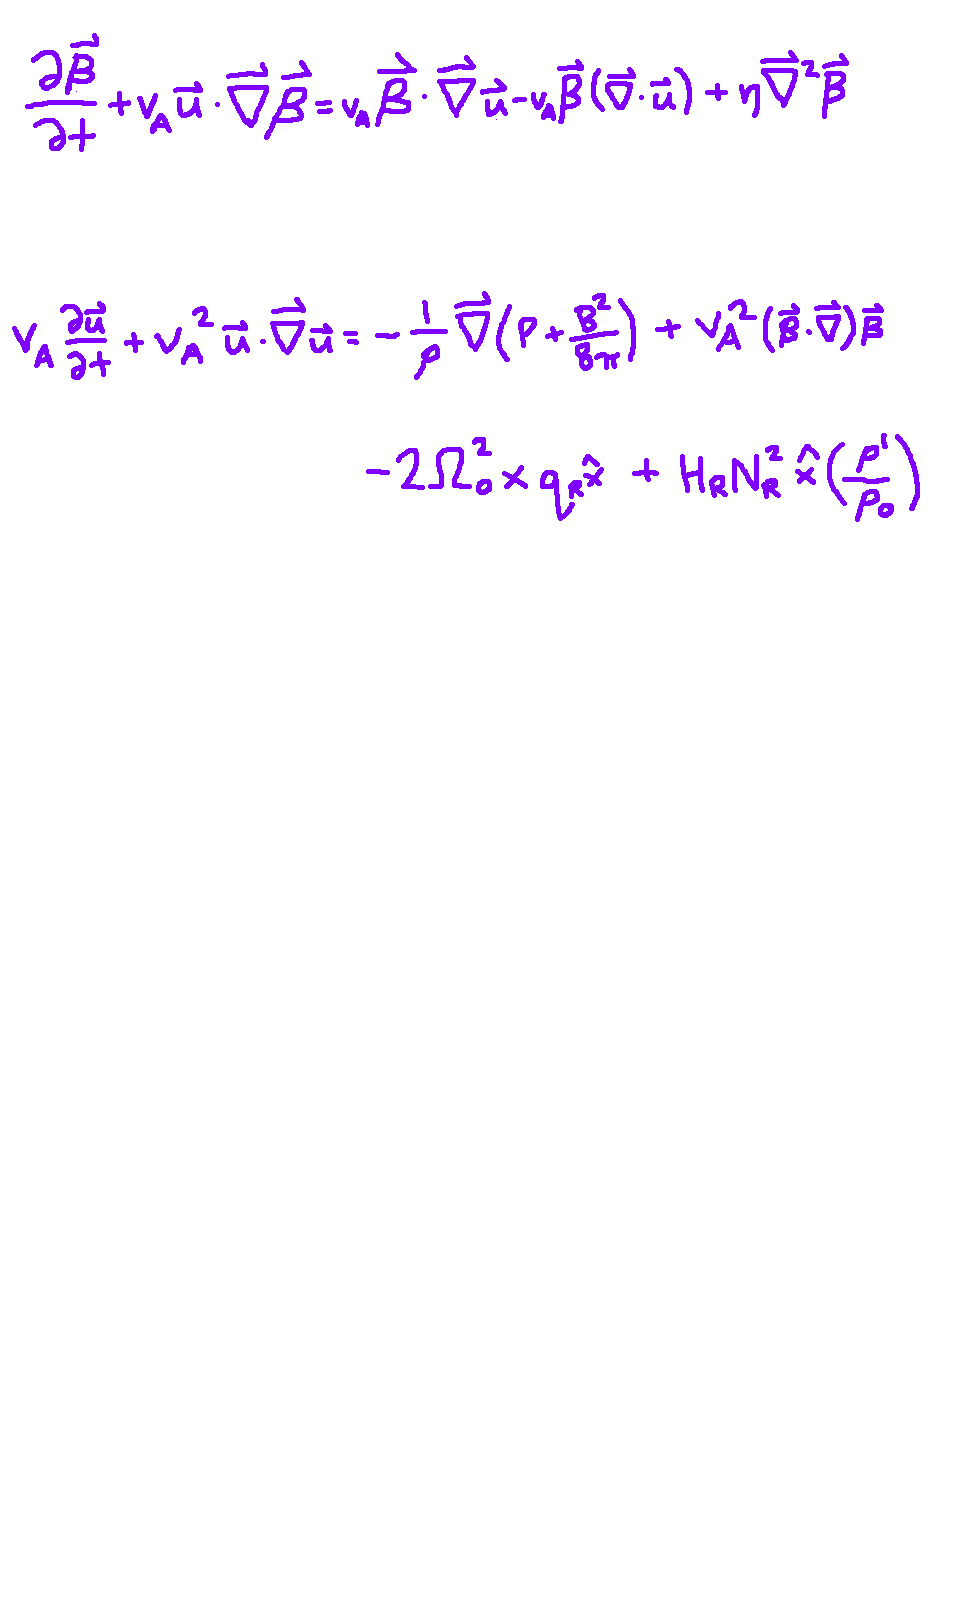 ∂β⃗/∂t + v_A u⃗ · ∇⃗β⃗ = v_A β⃗ · ∇⃗u⃗ - v_A β⃗(∇⃗ · u⃗) + η∇⃗²β⃗
v_A ∂u⃗/∂t + v_A² u⃗ · ∇⃗u⃗ = - 1/ρ ∇⃗(P + B²/8π) + v_A²(β⃗ · ∇⃗)β⃗
- 2Ω₀² x q_R x̂ + H_R N_R² x̂ (ρ'/ρ₀)